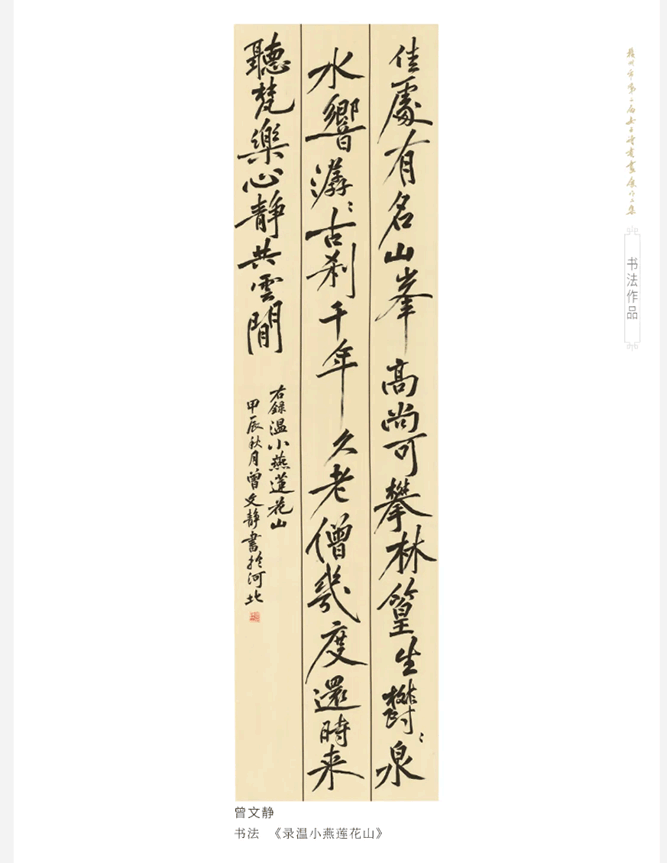 佳處有名山峯高尚可攀林篁生鬱〻泉
水響潺〻古刹千年久老僧幾度還時来
聽梵樂心静共雲間
右録温小燕蓮花山
甲辰秋月曾文静書於河北
书法作品
曾文静
书法 《录温小燕莲花山》